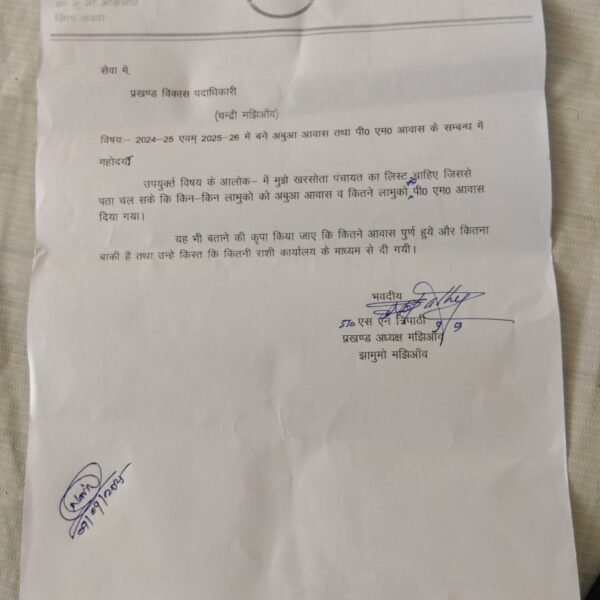 जिला-गढवा
सेवा मे,
प्रखण्ड विकास पदाधिकारी
(चन्द्री मझिआँव)
विषयः- 2024-25 एवम् 2025-26 में बने अबुआ आवास तथा पी0 एम0 आवास के सम्बन्ध में
महोदया
उपर्युक्त विषय के आलोक- में मुझे खरसोता पंचायत का लिस्ट चाहिए जिससे
पता चल सके कि किन-किन लाभुको को अबुआ आवास व कितने लाभुको पी0 एम0 आवास
दिया गया।
यह भी बताने की कृपा किया जाए कि कितने आवास पुर्ण हुये और कितना
बाकी है तथा उन्हे किस्त कि कितनी राशी कार्यालय के माध्यम से दी गयी।
भवदीय
S/o एस एन त्रिपाठी 9/9
प्रखण्ड अध्यक्ष मझिआँव
झामुमो मझिआँव
09/09/2025